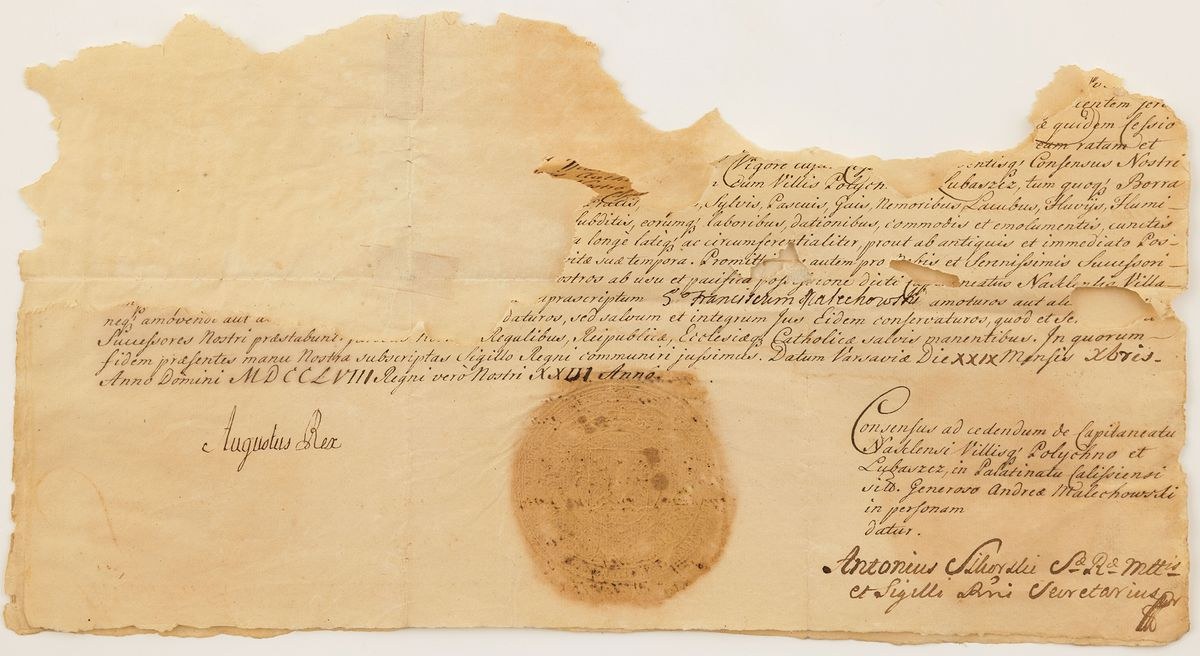 ientem
quidem Cessio
eam ratam et
Vigore entisq; Consensus Nostri
cum Villis Polych Lubaszcz, tum quoq; Borra
Sylvis, Pascuis, Gais, Nemoribus, Lacubus, Fluvijs, Flumi-
Subditis, eorumq; laboribus, dationibus, commodis et emolumentis, cunctis
longè latèq; ac circumferentialiter, prout ab antiquis et immediato Pos-
vitæ suæ tempora. autem pro bis et Serenissimis Successori-
ostros ab usu et pacifica possessione neatus Villa-
præscriptum Franciscum Malechowski amoturos aut
neq; amovendi aut a daturos, sed salvum et integrum Jus Eidem conservaturos, quod et Se.
Successores Nostri præstabunt. Regalibus, Reipublicæ, Ecclesiæq; Catholicæ salvis manentibus. In quorum-
fidem præsentes manu Nostra subscriptas Sigillo Regni communiri jussimus. Datum Varsaviæ Die XXIX Mensis Xbris-
Anno Domini MDCCLVIII Regni vero Nostri XXIII Anno.
Augustus Rex
Consensus ad cedendum de Capitaneatu
Naklensi Villisq; Polychno et
Lubaszcz, in Palatinatu Calissiensi
sitt. Generoso Andreæ Malechowski
in personam
datur.
Antonius Sikorski S. R. Mttis
et Sigilli Secretarius